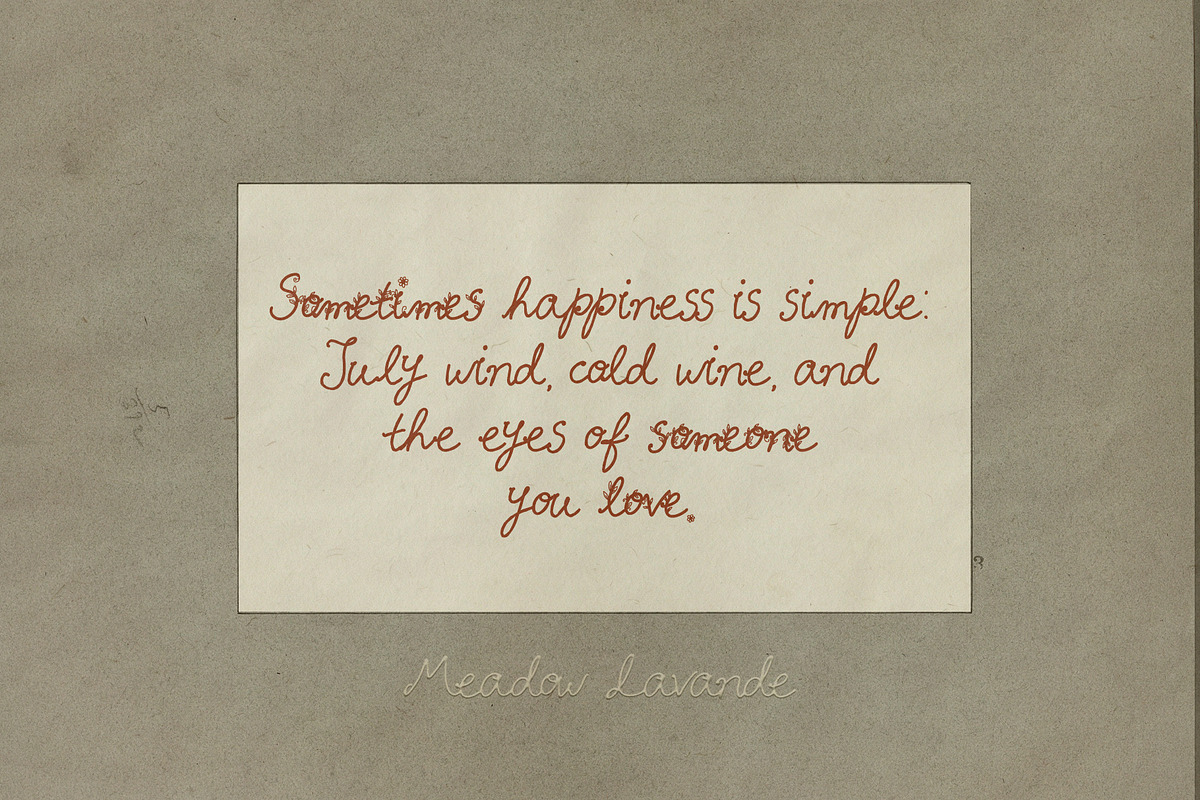 Sometimes happiness is simple:
July wind, cold wine, and
the eyes of someone
you love.
3
Meadow Lavande